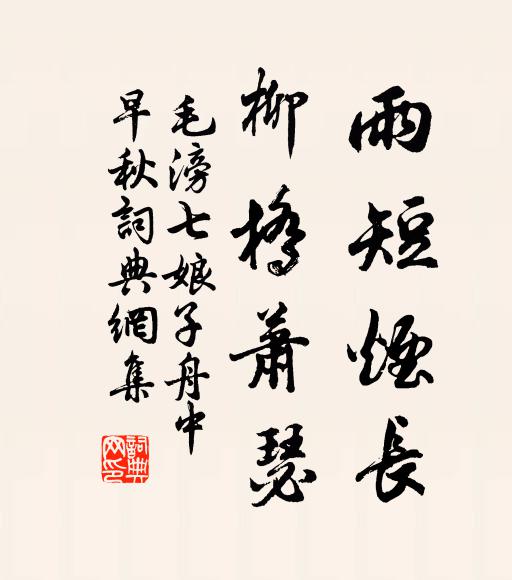 雨短煙長
柳橋蕭瑟
毛滂七娘子舟中
早秋詞典網集
詞典
网印